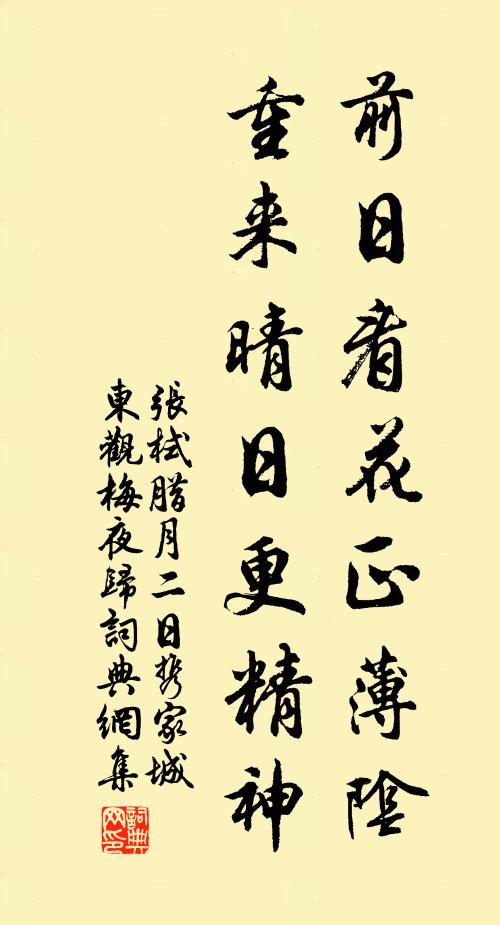 前日看花正薄陰
重来晴日更精神
張栻腊月二日携家城
東觀梅夜歸詞典網集
詞典
网印